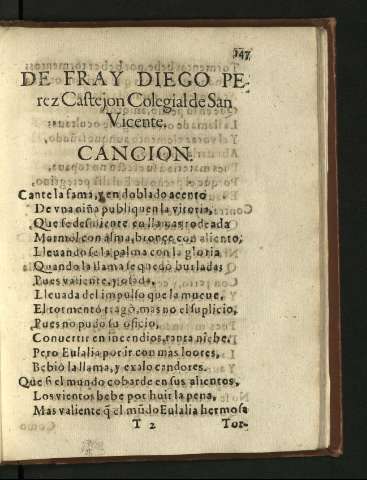 147
DE FRAY DIEGO PE-
rez Castejon Colegial de San
Vicente.
CANCION.
Cante la fama, y en doblado acento
De vna niña publiquen la vitoria,
Que se desmiente en llamas rodeada
Marmol con alma, bronce con aliento,
Lleuandose la palma con la gloria
Quando la llama se quedò burlada:
Pues valiente, y osada,
Lleuada del impulso que la mueue,
El tormento tragò, mas no el suplicio,
Pues no pudo su oficio,
Conuertir en incendios, tanta niebe,
Pero Eulalia por ir con mas loores,
Bebiò la llama, y exalo candores.
Que si el mundo cobarde en sus alientos,
Los vientos bebe por huir la pena,
Mas valiente q̃ el mũdo Eulalia hermosa
T 2
Tor-